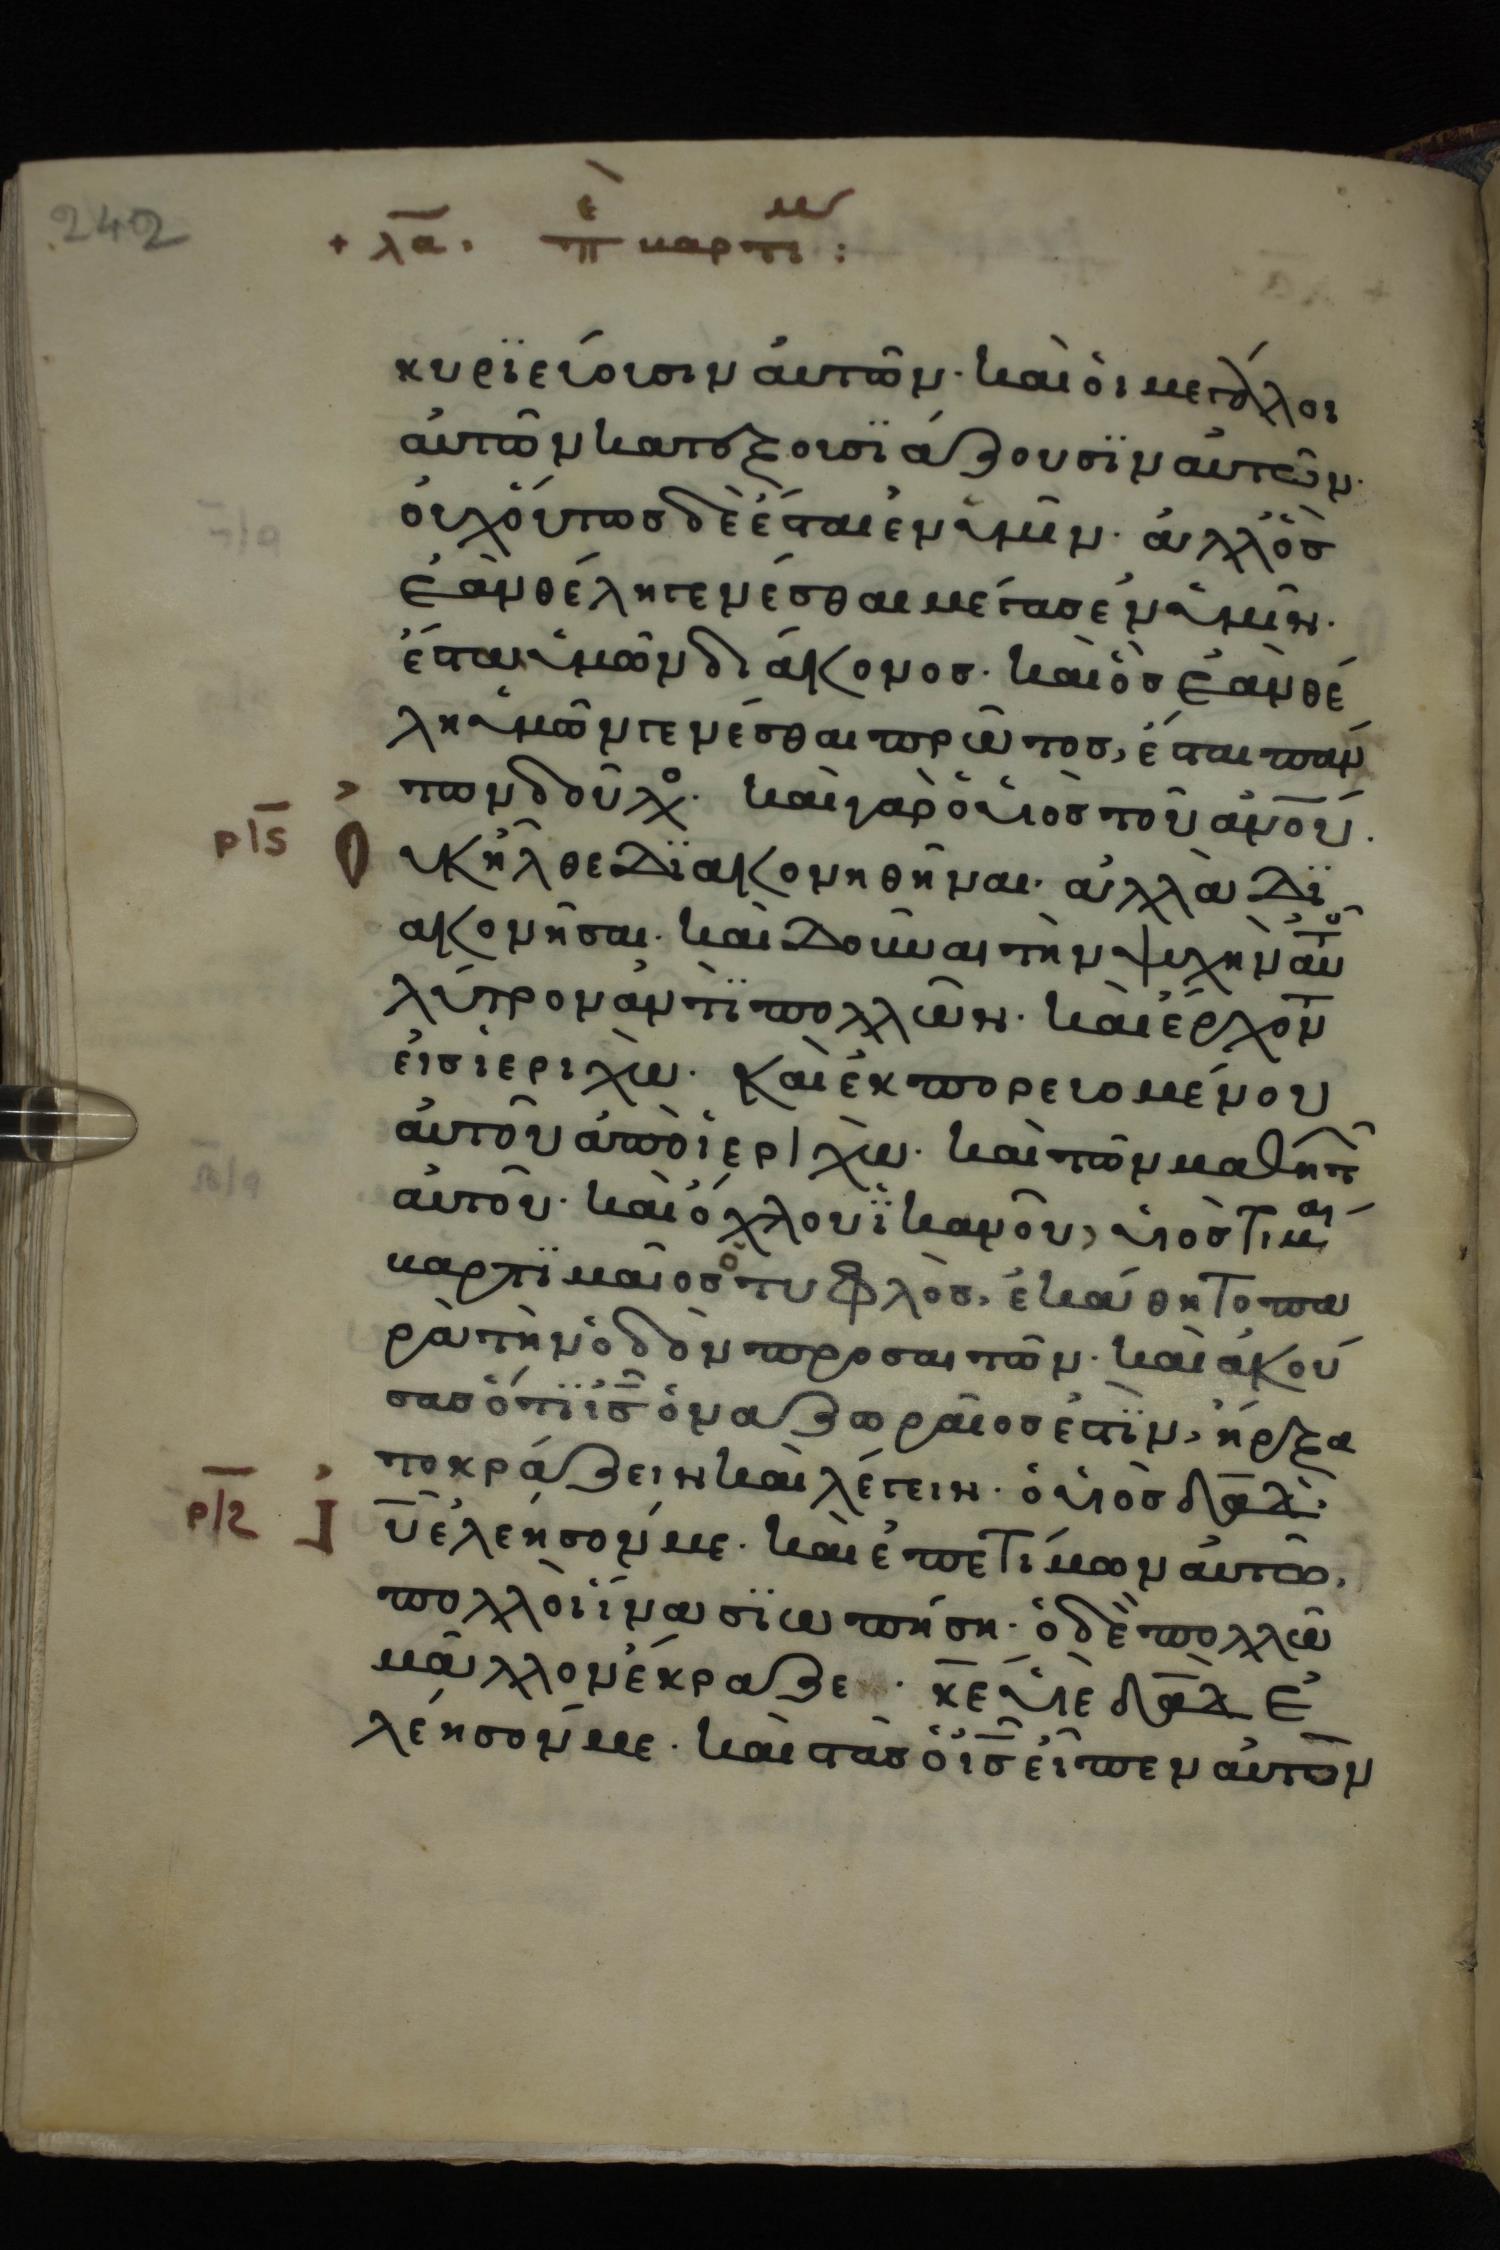 242
+ λ̅α̅. πὲ καρπιμ :
κυρϊεύουσιν ἀυτῶν· καὶ ὁι μεγάλοι
ἀυτῶν κατεξουσϊάζουσϊν ἀυτῶν·
ὀυχ ὅυτως δὲ ἔσται ἐν ὑμῖν· ἀλλ ὃς
ἐὰν θέλη γενέσθαι μέγας ἐν ὑμῖν·
ἔσται ὑμῶν διάκονος· καὶ ὃς ἐὰν θέ
λη ὑμῶν γενέσθαι πρῶτος, ἔσται πάν
των δοῦλο· καὶ γὰρ ὁ ὑιὸς τοῦ α̅ν̅ο̅υ̅·
ρ̅ι̅ς̅
ὀυκ ἦλθε δϊακονηθῆναι· ἀλλὰ δϊ
ακονῆσαι· καὶ δοῦναι τὴν ψυχὴν ἀυτοῦ
λύτρον ἀντϊ πολλῶν· καὶ ἔρχοντ
ἐις ἱεριχὼ· καὶ ἐκπορευομένου
ἀυτοῦ ἀπὸ ἱεριχὼ· καὶ τῶν μαθητ
ἀυτοῦ· καὶ ὄχλου ϊκανοῦ, ὑιὸς τιμαί
βαρτϊμαῖος ὁ τυφλὸς, ἐκάθητο πα
ρὰ τὴν ὁδὸν προσαιτῶν· καὶ ἀκού
σας ὅτϊ ι̅ς̅ ὁ ναζωραῖος ἐστϊν, ἤρξα
το κράζειν καὶ λέγειν· ὁ ὑιὸς δ̅α̅δ̅·
ρ̅ι̅ζ̅
ι̅υ̅ ἐλέησόν με· καὶ ἐπετίμων ἀυτῶ,
πολλοὶ ἵνα σϊωπήση· ὁ δὲ πολλῶ
μᾶλλον ἔκραζε · κ̅ε̅ ὑιὲ δ̅α̅δ̅ ἐ
λέησόν με· καὶ στὰς ὁ ι̅ς̅ ἐῖπεν ἀυτὸν